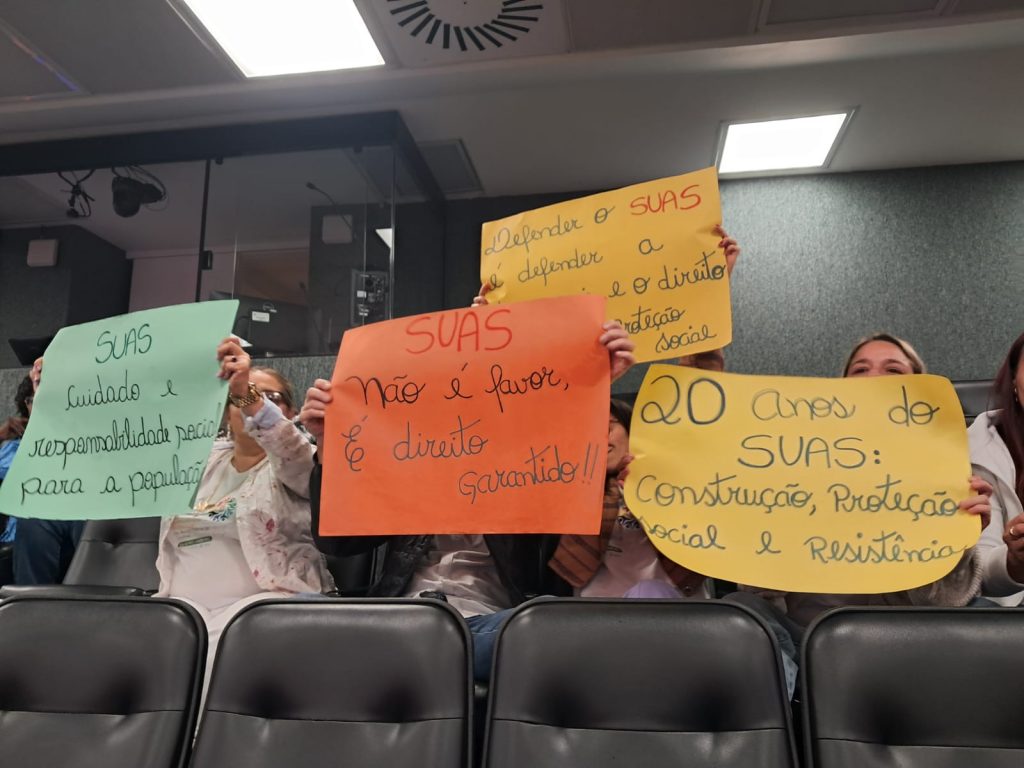 SUAS
Cuidado e
responsabilidade
para a população
SUAS
Não é favor,
É direito
garantido!!
Defender o SUAS
é defender a
e o direito
proteção
social
20 Anos do
SUAS:
Construção, Proteção
social e Resistência